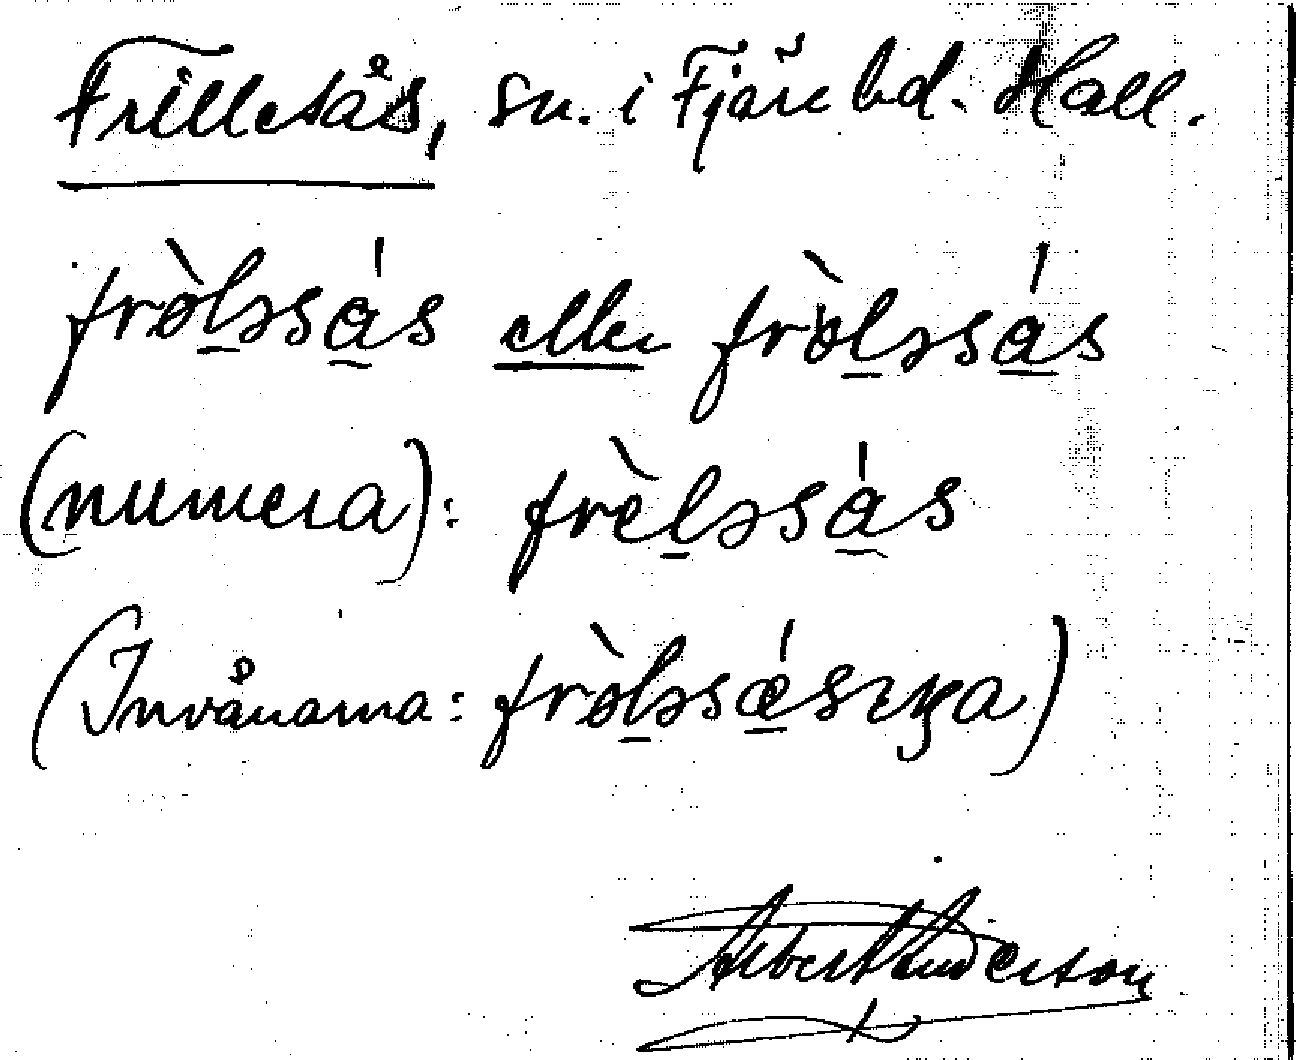 Frillesås, sn. i Fjäre hd. Hall.
fròlssǻs eller fròlssǻs
(numera): frèlssás
(Invånarna: fròlssǽsıŋa)
Albert Anderson